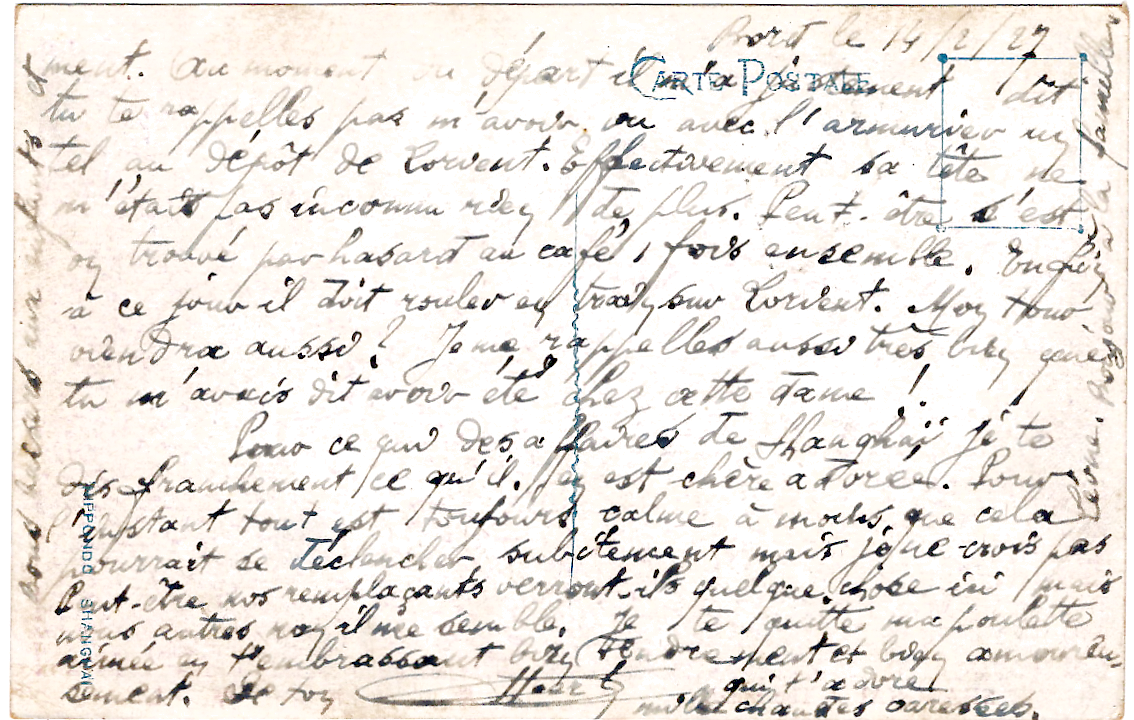 Bord le 14/2/27
CARTE POSTALE
ment. Au moment du départ il m'a justement dit
tu te rappelles pas m'avoir vu avec l'armurier un
tel au dépôt de Lorient. Effectivement sa tête ne
m'était pas inconnu rien de plus. Peut-être s'est
on trouvé par hasard au café 1 fois ensemble. Enfin
à ce jour il doit rouler en train sur Lorient. Mon tour
viendra aussi? Je me rappelles aussi très bien que
tu m'avais dit avoir été chez cette dame!
Pour ce qui des affaires de Shanghaï je te
dis franchement ce qu'il en est chère adorée. Pour
l'instant tout est toujours calme à moins que cela
pourrait se déclencher subitement mais je ne crois pas
Peut-être nos remplaçants verront-ils quelque chose ici mais
nous autres non il me semble. Je te quitte ma poulette
aimée en t'embrassant bien tendrement et bien amoureu-
sement. De ton qui t'adore
mille chaudes caresses.
bons baisers aux enfants et
Bonjour à la famille
SHANGHAI